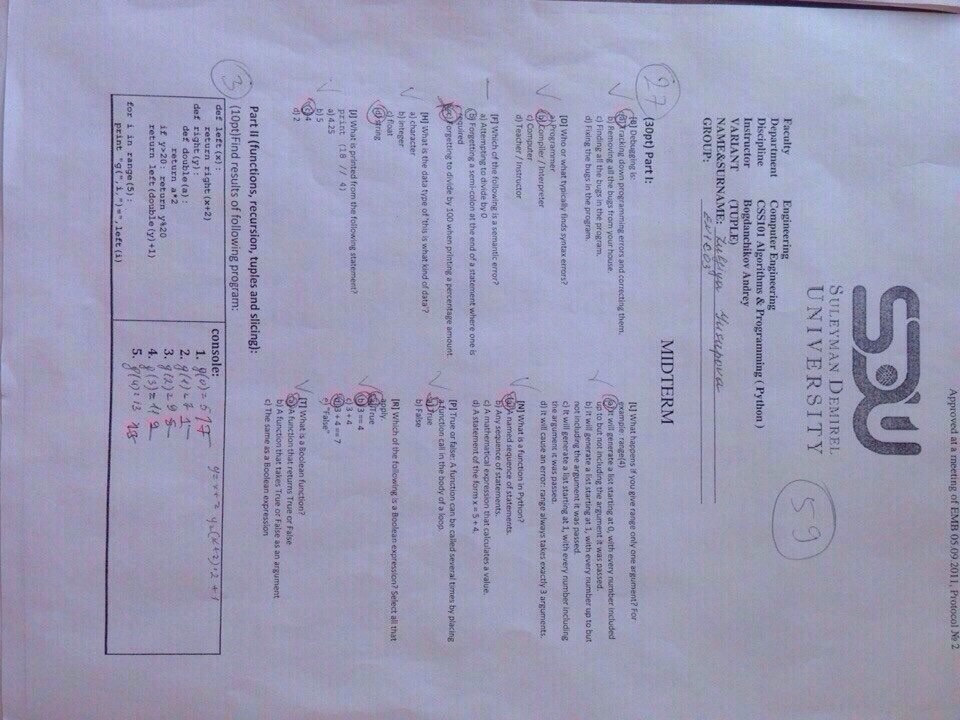 Approved at a meeting of EMB 05.09.2011, Protocol № 2
SDU
SULEYMAN DEMIREL
UNIVERSITY
59
Faculty Engineering
Department Computer Engineering
Discipline CSS101 Algorithms & Programming ( Python )
Instructor Bogdanchikov Andrey
VARIANT (TUPLE)
NAME&SURNAME: Zulfiya Yusupova
GROUP:
MIDTERM
27
(30pt) Part I:
Debugging is:
a) Tracking down programming errors and correcting them.
b) Removing all the bugs from your house.
c) Finding all the bugs in the program.
d) Fixing the bugs in the program.
[D] Who or what typically finds syntax errors?
a) Programmer
b) Compiler / Interpreter
c) Computer
d) Teacher / Instructor
[F] Which of the following is a semantic error?
a) Attempting to divide by 0
b) Forgetting a semi-colon at the end of a statement where one is
required
c) Forgetting to divide by 100 when printing a percentage amount
[H] What is the data type of 'this is what kind of data'?
a) character
b) integer
c) float
d) string
[J] What is printed from the following statement?
print (18 // 4)
a) 4.25
b) 5
c) 4
d) 2
[L] What happens if you give range only one argument? For
example: range(4)
a) It will generate a list starting at 0, with every number included
up to but not including the argument it was passed.
b) It will generate a list starting at 1, with every number up to but
not including the argument it was passed.
c) It will generate a list starting at 1, with every number including
the argument it was passed.
d) It will cause an error: range always takes exactly 3 arguments.
[N] What is a function in Python?
a) A named sequence of statements.
b) Any sequence of statements.
c) A mathematical expression that calculates a value.
d) A statement of the form x = 5 + 4.
[P] True or false: A function can be called several times by placing
a function call in the body of a loop.
a) True
b) False
[R] Which of the following is a Boolean expression? Select all that
apply.
a) True
b) 3 == 4
c) 3 + 4
d) 3 + 4 == 7
e) "False"
[T] What is a Boolean function?
a) A function that returns True or False
b) A function that takes True or False as an argument
c) The same as a Boolean expression
Part II (functions, recursion, tuples and slicing):
3
(10pt)Find results of following program:
def left(x):
return right(x+2)
def right(y):
def double(a):
return a*2
if y>20: return y%20
return left(double(y)+1)
for i in range(5):
print "g(",i,")=",left(i)
console:
1. g(0)=5 17
2. g(1)=7 1
3. g(2)=9 5
4. g(3)=11 9
5. g(4)=13 13